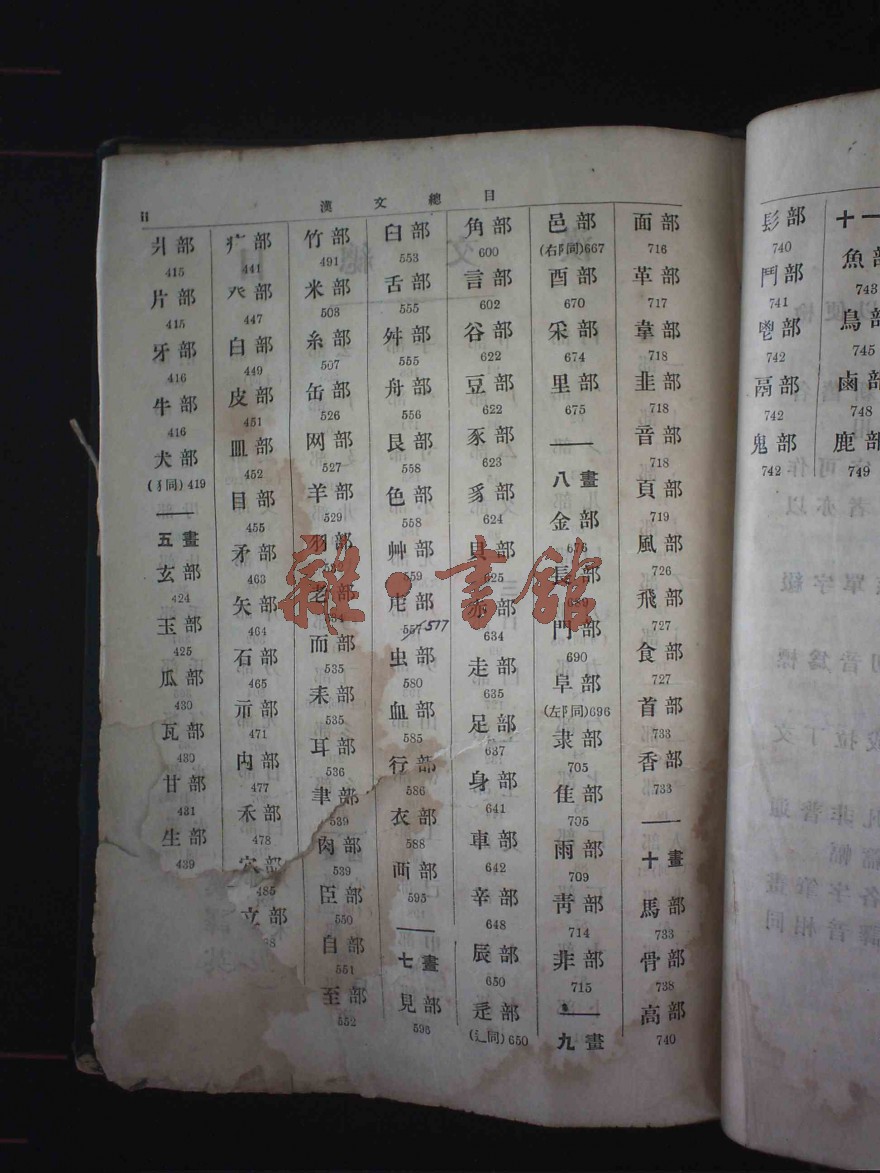 ii
漢文總目
爿部
415
片部
415
牙部
416
牛部
416
犬部
(犭同) 419
五畫
玄部
424
玉部
425
瓜部
430
瓦部
430
甘部
431
生部
439
疒部
441
癶部
447
白部
449
皮部
451
皿部
452
目部
455
矛部
463
矢部
464
石部
465
示部
471
禸部
477
禾部
478
穴部
485
立部
竹部
491
米部
503
糸部
507
缶部
526
网部
527
羊部
529
羽部
老部
而部
535
耒部
535
耳部
536
聿部
539
肉部
539
臣部
550
自部
551
至部
552
臼部
553
舌部
555
舛部
555
舟部
556
艮部
558
色部
558
艸部
559
虍部
577
虫部
580
血部
585
行部
586
衣部
588
襾部
595
七畫
見部
598
角部
600
言部
602
谷部
622
豆部
622
豕部
623
豸部
624
貝部
625
赤部
634
走部
635
足部
637
身部
641
車部
642
辛部
648
辰部
650
辵部
(辶同) 650
邑部
(右阝同) 667
酉部
670
釆部
674
里部
675
八畫
金部
676
長部
689
門部
690
阜部
(左阝同) 696
隶部
705
隹部
705
雨部
709
靑部
714
非部
715
九畫
面部
716
革部
717
韋部
718
韭部
718
音部
718
頁部
719
風部
726
飛部
727
食部
727
首部
733
香部
733
十畫
馬部
733
骨部
738
高部
740
髟部
740
鬥部
741
鬯部
742
鬲部
742
鬼部
742
十一
魚部
743
鳥部
745
鹵部
748
鹿部
749
雜·書館